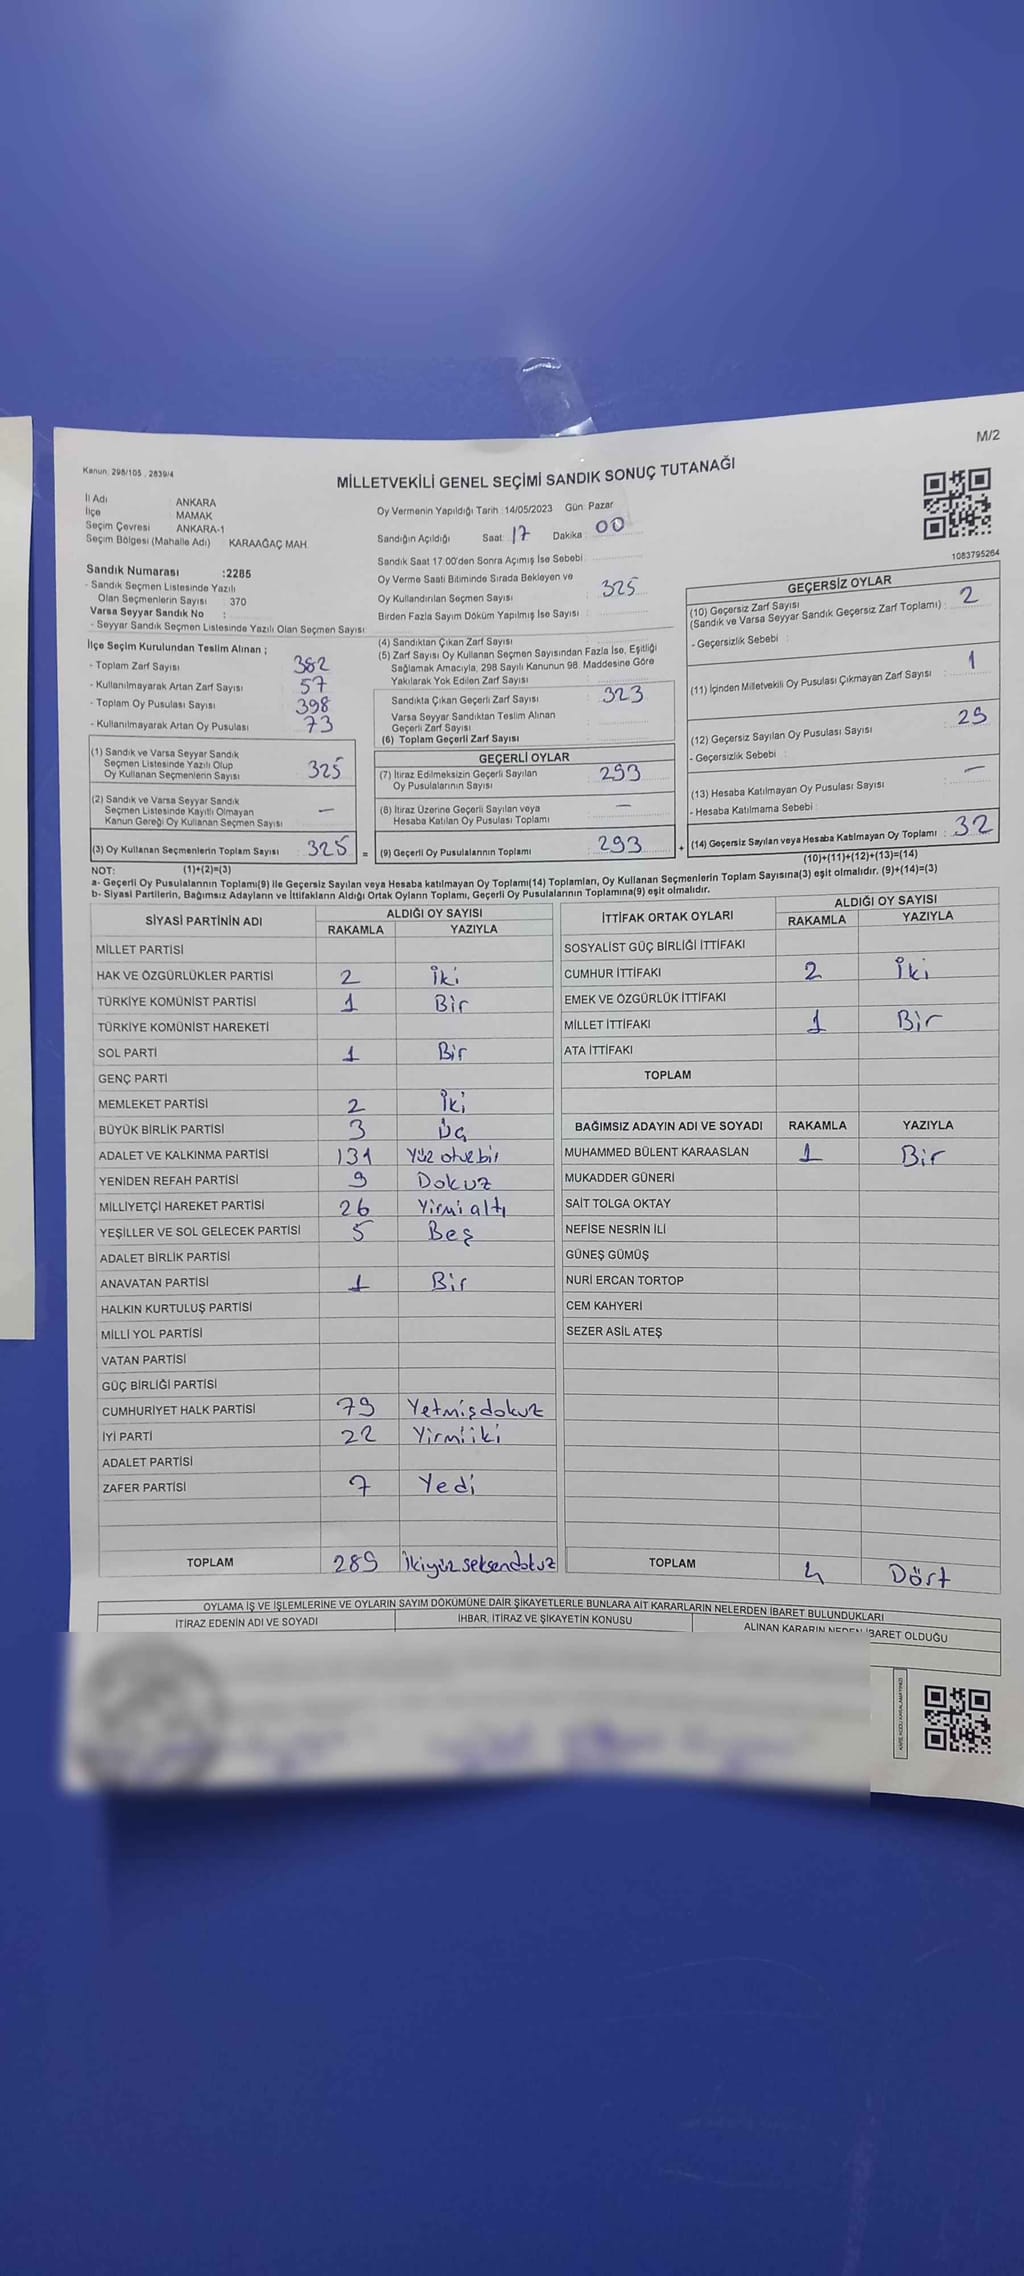 M/2
Kanun: 298/105 , 2839/4
MİLLETVEKİLİ GENEL SEÇİMİ SANDIK SONUÇ TUTANAĞI
İl Adı : ANKARA
İlçe : MAMAK
Seçim Çevresi : ANKARA-1
Seçim Bölgesi (Mahalle Adı) : KARAAĞAÇ MAH.
Sandık Numarası :2285
- Sandık Seçmen Listesinde Yazılı
Olan Seçmenlerin Sayısı : 370
Varsa Seyyar Sandık No :
- Seyyar Sandık Seçmen Listesinde Yazılı Olan Seçmen Sayısı:
İlçe Seçim Kurulundan Teslim Alınan ;
- Toplam Zarf Sayısı 382
- Kullanılmayarak Artan Zarf Sayısı 57
- Toplam Oy Pusulası Sayısı 398
- Kullanılmayarak Artan Oy Pusulası 73
(1) Sandık ve Varsa Seyyar Sandık
Seçmen Listesinde Yazılı Olup
Oy Kullanan Seçmenlerin Sayısı 325
(2) Sandık ve Varsa Seyyar Sandık
Seçmen Listesinde Kayıtlı Olmayan
Kanun Gereği Oy Kullanan Seçmen Sayısı —
(3) Oy Kullanan Seçmenlerin Toplam Sayısı : 325 =
Oy Vermenin Yapıldığı Tarih :14/05/2023 Gün: Pazar
Sandığın Açıldığı Saat: 17 Dakika 00
Sandık Saat 17.00'den Sonra Açımış İse Sebebi:
Oy Verme Saati Bitiminde Sırada Bekleyen ve
Oy Kullandırılan Seçmen Sayısı
Birden Fazla Sayım Döküm Yapılmış İse Sayısı :
325
(4) Sandıktan Çıkan Zarf Sayısı
(5) Zarf Sayısı Oy Kullanan Seçmen Sayısından Fazla İse, Eşitliği
Sağlamak Amacıyla, 298 Sayılı Kanunun 98. Maddesine Göre
Yakılarak Yok Edilen Zarf Sayısı
Sandıkta Çıkan Geçerli Zarf Sayısı : 323
Varsa Seyyar Sandıktan Teslim Alınan
Geçerli Zarf Sayısı
(6) Toplam Geçerli Zarf Sayısı :
GEÇERLİ OYLAR
(7) İtiraz Edilmeksizin Geçerli Sayılan
Oy Pusulalarının Sayısı : 293
(8) İtiraz Üzerine Geçerli Sayılan veya
Hesaba Katılan Oy Pusulası Toplamı : —
(9) Geçerli Oy Pusulalarının Toplamı : 293 +
1083795264
GEÇERSİZ OYLAR
(10) Geçersiz Zarf Sayısı
(Sandık ve Varsa Seyyar Sandık Geçersiz Zarf Toplamı) : 2
- Geçersizlik Sebebi :
(11) İçinden Milletvekili Oy Pusulası Çıkmayan Zarf Sayısı : 1
(12) Geçersiz Sayılan Oy Pusulası Sayısı : 29
- Geçersizlik Sebebi :
(13) Hesaba Katılmayan Oy Pusulası Sayısı : —
- Hesaba Katılmama Sebebi :
(14) Geçersiz Sayılan veya Hesaba Katılmayan Oy Toplamı : 32
(10)+(11)+(12)+(13)=(14)
NOT: (1)+(2)=(3)
a- Geçerli Oy Pusulalarının Toplamı(9) ile Geçersiz Sayılan veya Hesaba katılmayan Oy Toplamı(14) Toplamları, Oy Kullanan Seçmenlerin Toplam Sayısına(3) eşit olmalıdır. (9)+(14)=(3)
b- Siyasi Partilerin, Bağımsız Adayların ve İttifakların Aldığı Ortak Oyların Toplamı, Geçerli Oy Pusulalarının Toplamına(9) eşit olmalıdır.
SİYASİ PARTİNİN ADI ALDIĞI OY SAYISI
RAKAMLA YAZIYLA
MİLLET PARTİSİ
HAK VE ÖZGÜRLÜKLER PARTİSİ 2 İki
TÜRKİYE KOMÜNİST PARTİSİ 1 Bir
TÜRKİYE KOMÜNİST HAREKETİ
SOL PARTİ 1 Bir
GENÇ PARTİ
MEMLEKET PARTİSİ 2 İki
BÜYÜK BİRLİK PARTİSİ 3 Üç
ADALET VE KALKINMA PARTİSİ 131 Yüz otuz bir
YENİDEN REFAH PARTİSİ 9 Dokuz
MİLLİYETÇİ HAREKET PARTİSİ 26 Yirmi altı
YEŞİLLER VE SOL GELECEK PARTİSİ 5 Beş
ADALET BİRLİK PARTİSİ
ANAVATAN PARTİSİ 1 Bir
HALKIN KURTULUŞ PARTİSİ
MİLLİ YOL PARTİSİ
VATAN PARTİSİ
GÜÇ BİRLİĞİ PARTİSİ
CUMHURİYET HALK PARTİSİ 79 Yetmişdokuz
İYİ PARTİ 22 Yirmiiki
ADALET PARTİSİ
ZAFER PARTİSİ 7 Yedi
TOPLAM 289 İkiyüz seksendokuz
İTTİFAK ORTAK OYLARI ALDIĞI OY SAYISI
RAKAMLA YAZIYLA
SOSYALİST GÜÇ BİRLİĞİ İTTİFAKI
CUMHUR İTTİFAKI 2 İki
EMEK VE ÖZGÜRLÜK İTTİFAKI
MİLLET İTTİFAKI 1 Bir
ATA İTTİFAKI
TOPLAM
BAĞIMSIZ ADAYIN ADI VE SOYADI RAKAMLA YAZIYLA
MUHAMMED BÜLENT KARAASLAN 1 Bir
MUKADDER GÜNERİ
SAİT TOLGA OKTAY
NEFİSE NESRİN İLİ
GÜNEŞ GÜMÜŞ
NURİ ERCAN TORTOP
CEM KAHYERİ
SEZER ASİL ATEŞ
TOPLAM 4 Dört
OYLAMA İŞ VE İŞLEMLERİNE VE OYLARIN SAYIM DÖKÜMÜNE DAİR ŞİKAYETLERLE BUNLARA AİT KARARLARIN NELERDEN İBARET BULUNDUKLARI
İTİRAZ EDENİN ADI VE SOYADI İHBAR, İTİRAZ VE ŞİKAYETİN KONUSU ALINAN KARARIN NEDEN İBARET OLDUĞU